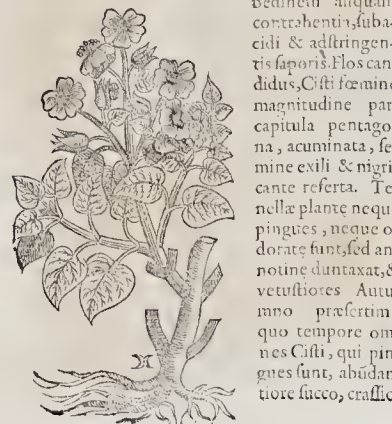 bedinem aliquam
contrahentia, ſuba-
cidi & adſtringen-
tis ſaporis. Flos can
didus, Ciſti fœmine
magnitudine par
capitula pentago
na, acuminata, ſe
mine exili & nigri
cante referta. Te
nellæ plantę nequ
pingues, neque o
doratę ſunt, ſed an
notinę duntaxat, &
vetuſtiores Autu
mno præſertim
quo tempore om
nes Ciſti, qui pin
gues ſunt, abūdan
tiore ſucco, craſſio